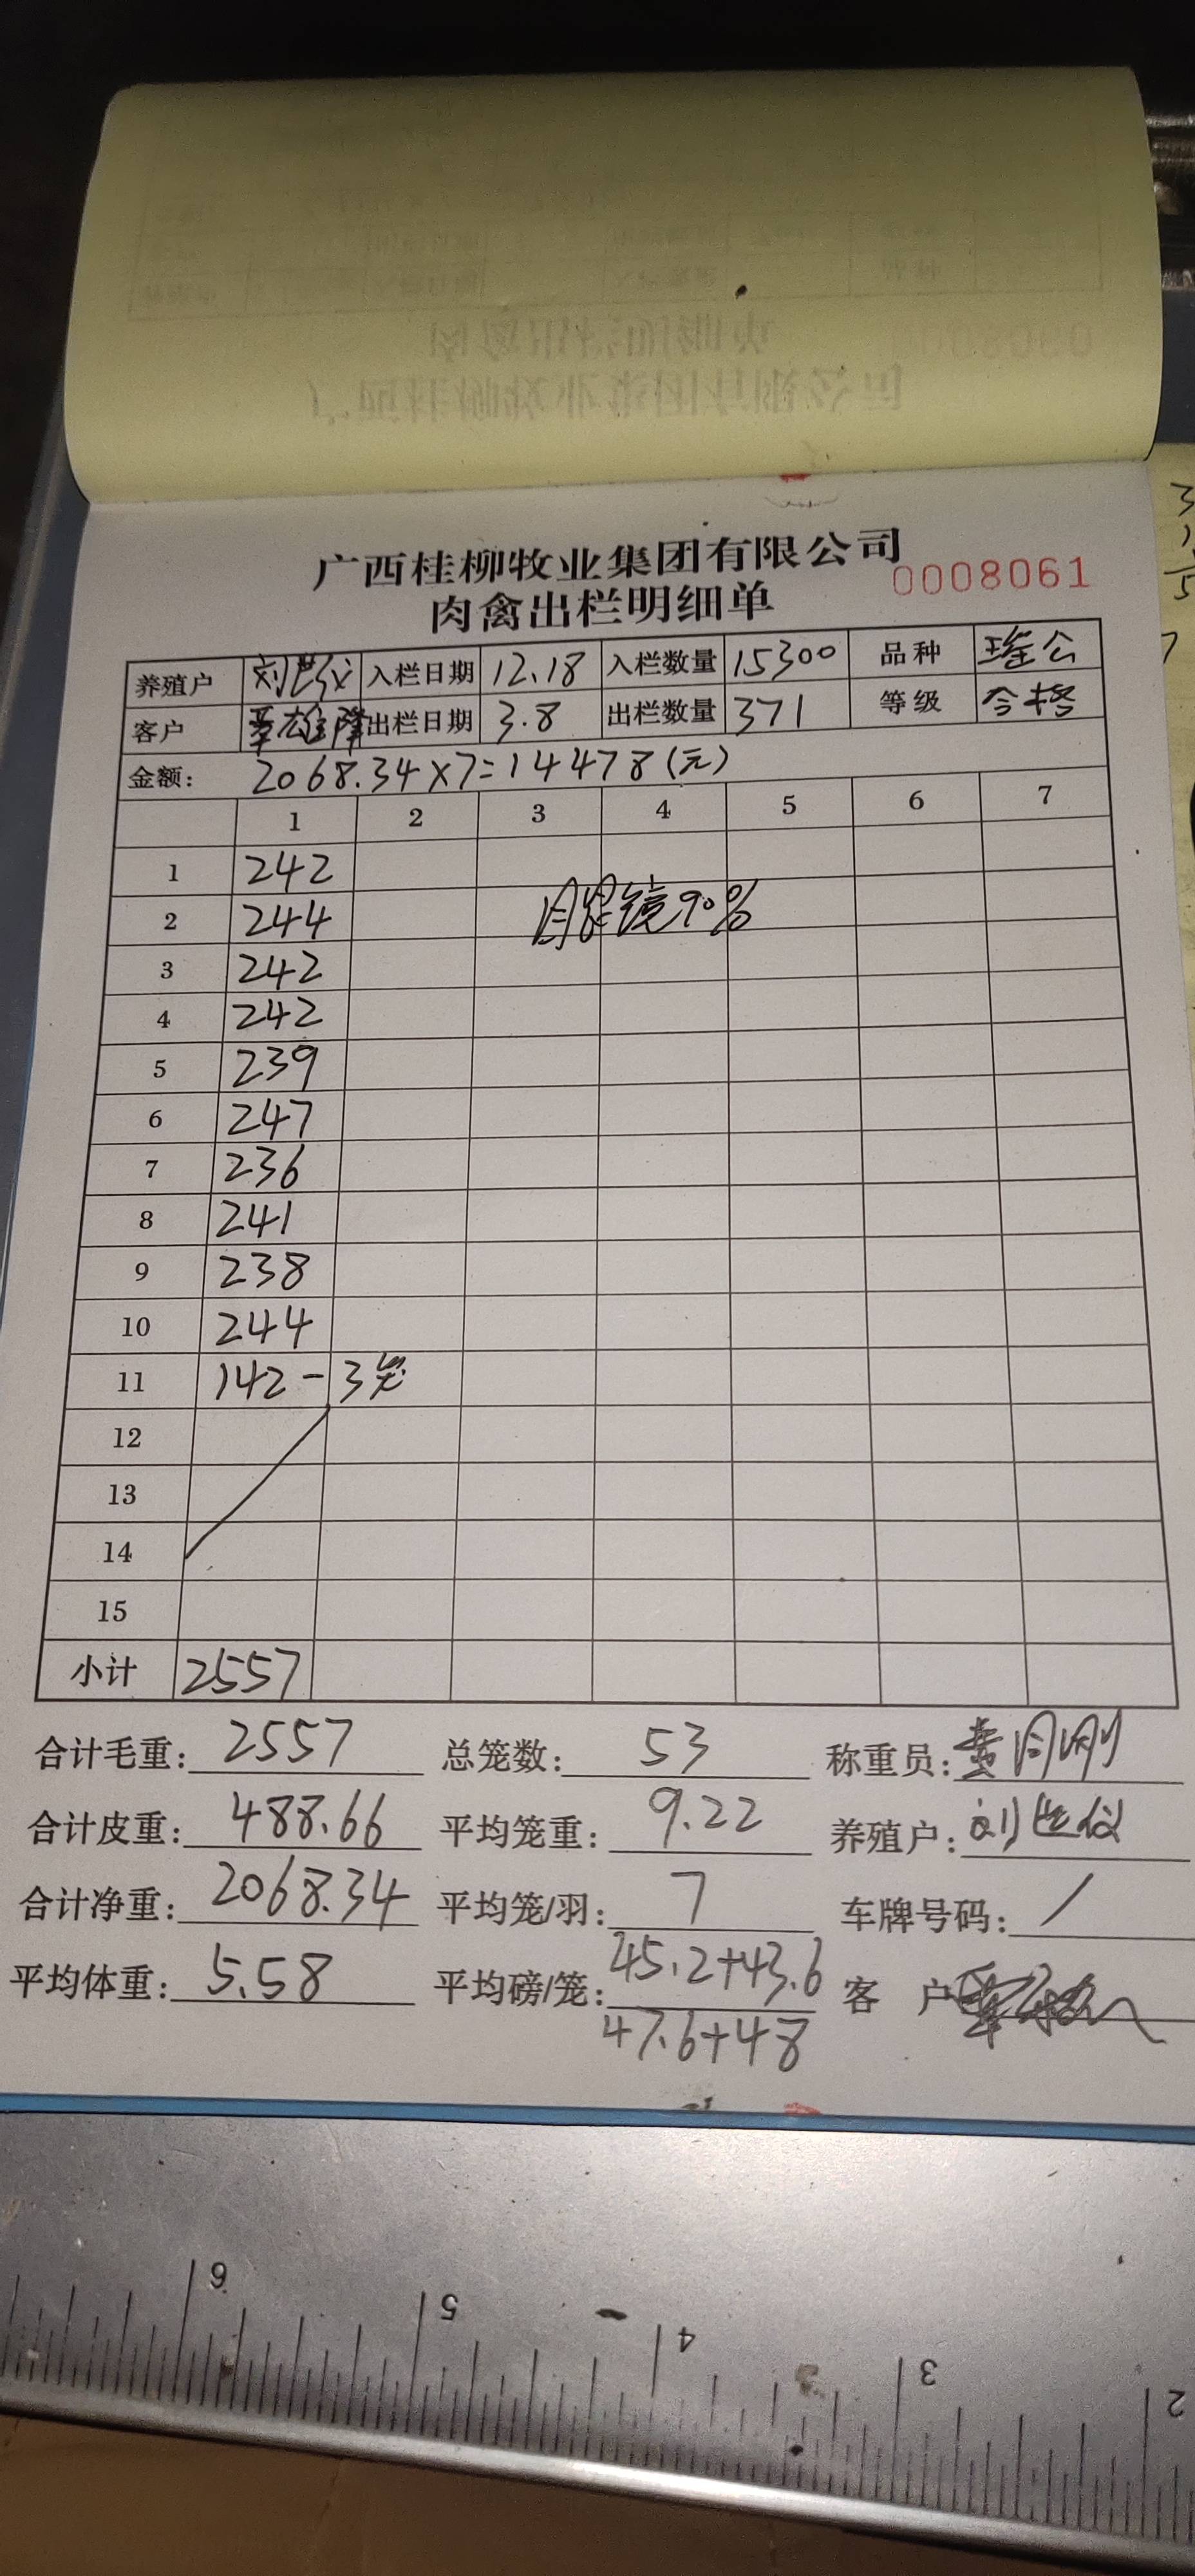 广西桂柳牧业集团有限公司
0008061
肉禽出栏明细单
养殖户 入栏日期 12.18 入栏数量 15300 品种 瑶公
客户 覃雄降 出栏日期 3.8 出栏数量 371 等级 合格
金额: 2068.34×7=14478(元)
1 2 3 4 5 6 7
1 242
2 244 眼镜90%
3 242
4 242
5 239
6 247
7 236
8 241
9 238
10 244
11 142-3笼
12
13
14
15
小计 2557
合计毛重: 2557 总笼数: 53 称重员:
合计皮重: 488.66 平均笼重: 9.22 养殖户:
合计净重: 2068.34 平均笼/羽: 7 车牌号码: /
平均体重: 5.58 平均磅/笼: 45.2+43.6 客 户
47.6+48
6 5 4 3 2